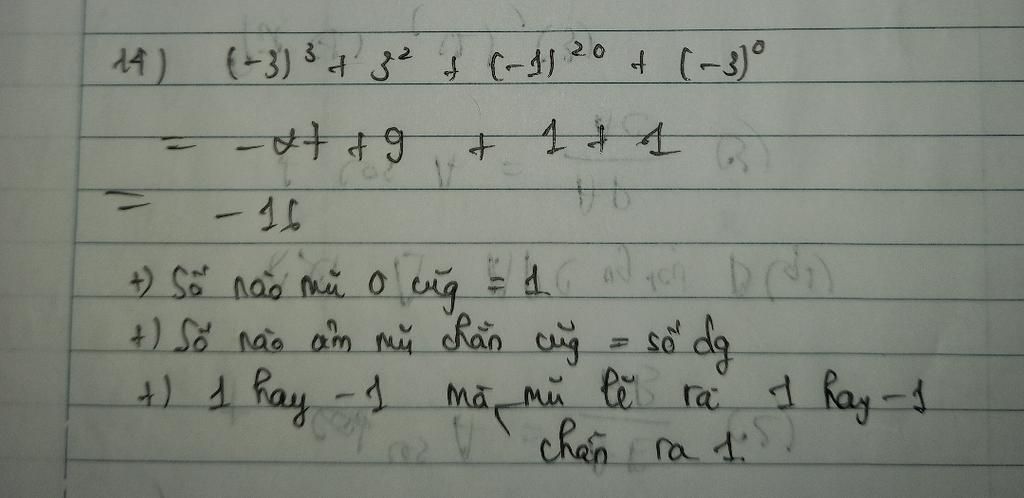 14) (-3)³ + 3² + (-1)²⁰ + (-3)⁰
= -27 + 9 + 1 + 1
= -16
+) Số nào mũ 0 cũg = 1
+) Số nào âm mũ chẵn cũg = số dg
+) 1 hay -1 mà mũ lẽ ra 1 hay -1
chẵn ra 1.